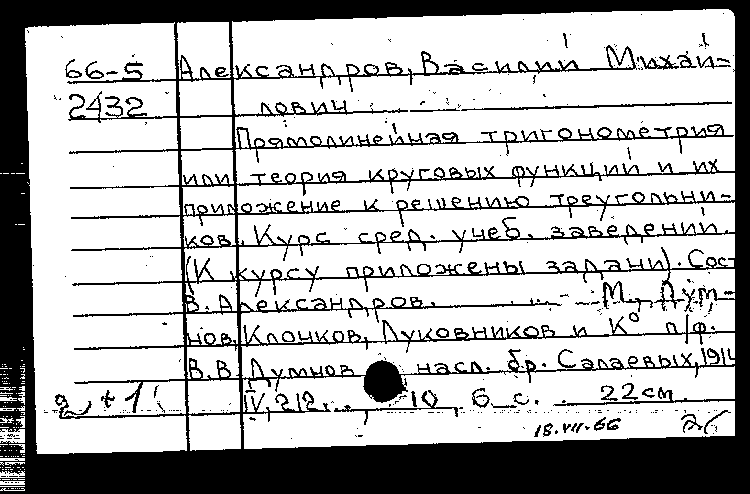 66-5 Александров, Василий Михай-
2432 лович
Прямолинейная тригонометрия
или теория круговых функций и их
приложение к решению треугольни-
ков. Курс сред. учеб. заведений.
(К курсу приложены задачи). Сост.
В. Александров. М., Дум-
нов, Клочков, Луковников и К° п/ф.
В.В. Думнов насл. бр. Салаевых, 191
IV, 212 , 10, 6 с. 22 см.
18.VII.66